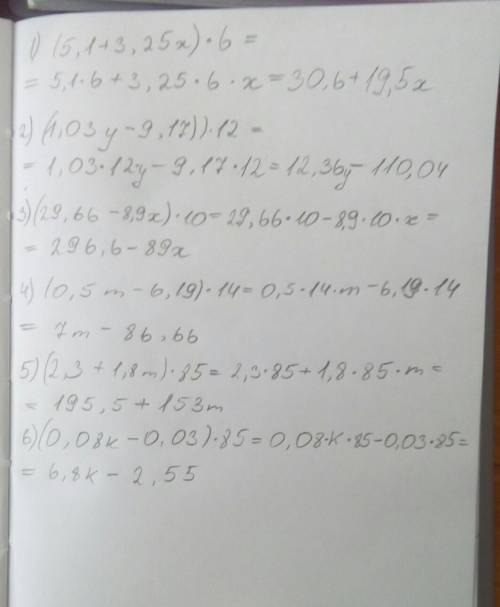 1) (5,1+3,25x)·6=
=5,1·6+3,25·6·x=30,6+19,5x
2) (1,03y-9,17))·12=
=1,03·12y-9,17·12=12,36y-110,04
3)(29,66-8,9x)·10=29,66·10-8,9·10·x=
=296,6-89x
4) (0,5m-6,19)·14=0,5·14·m-6,19·14
=7m-86,66
5)(2,3+1,8m)·85=2,3·85+1,8·85·m=
=195,5+153m
6)(0,08к-0,03)·85=0,08·к·85-0,03·85=
=6,8к-2,55